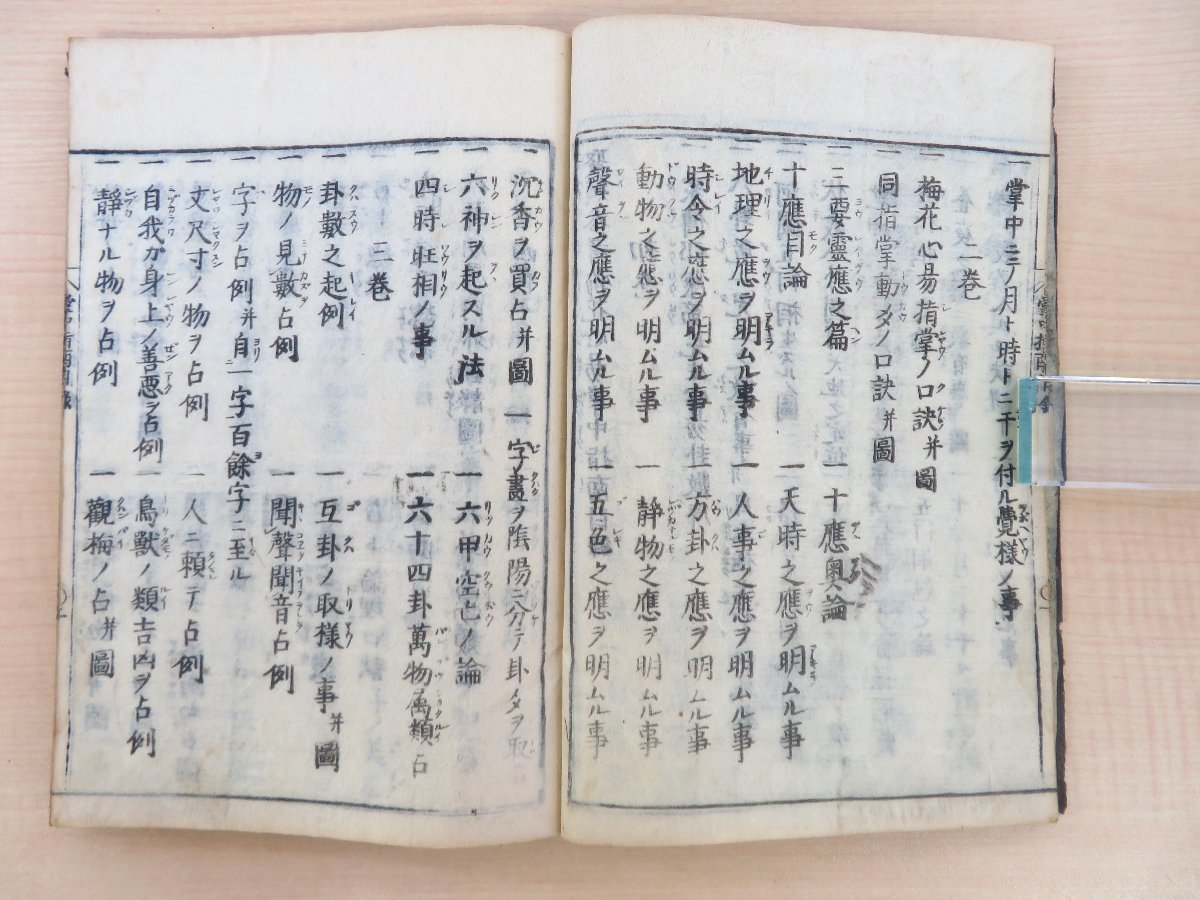 一 掌中ニノ月ト時ト二干ヲ付ル覺様ノ事
二巻
一 梅花心易指掌ノ口訣并圖
一 同指掌動爻ノ口訣并圖
一 三要靈應之篇 一 十應奥論
一 十應目論 一 天時之應ヲ明ムル事
一 地理之應ヲ明ムル事 一 人事之應ヲ明ムル事
一 時令之應ヲ明ムル事 一 方卦之應ヲ明ムル事
一 動物之應ヲ明ムル事 一 静物之應ヲ明ムル事
一 聲音之應ヲ明ムル事 一 五色之應ヲ明ムル事
一 沉香ヲ買占并圖 一 字畫ヲ陰陽ニ分テ卦爻ヲ取
一 六神ヲ起スル法 一 六甲空亡ノ論
一 四時旺相ノ事 一 六十四卦萬物属類占
三巻
一 卦數之起例 一 互卦ノ取様ノ事并圖
一 物ノ見數占例 一 聞聲聞音占例
一 字ヲ占例并自一字百餘字ニ至ル
一 丈尺寸ノ物ヲ占例 一 人ニ頼テ占例
一 自我カ身上ノ善悪ヲ占例 一 鳥獣ノ類吉凶ヲ占例
一 静ナル物ヲ占例 一 觀梅ノ占并圖